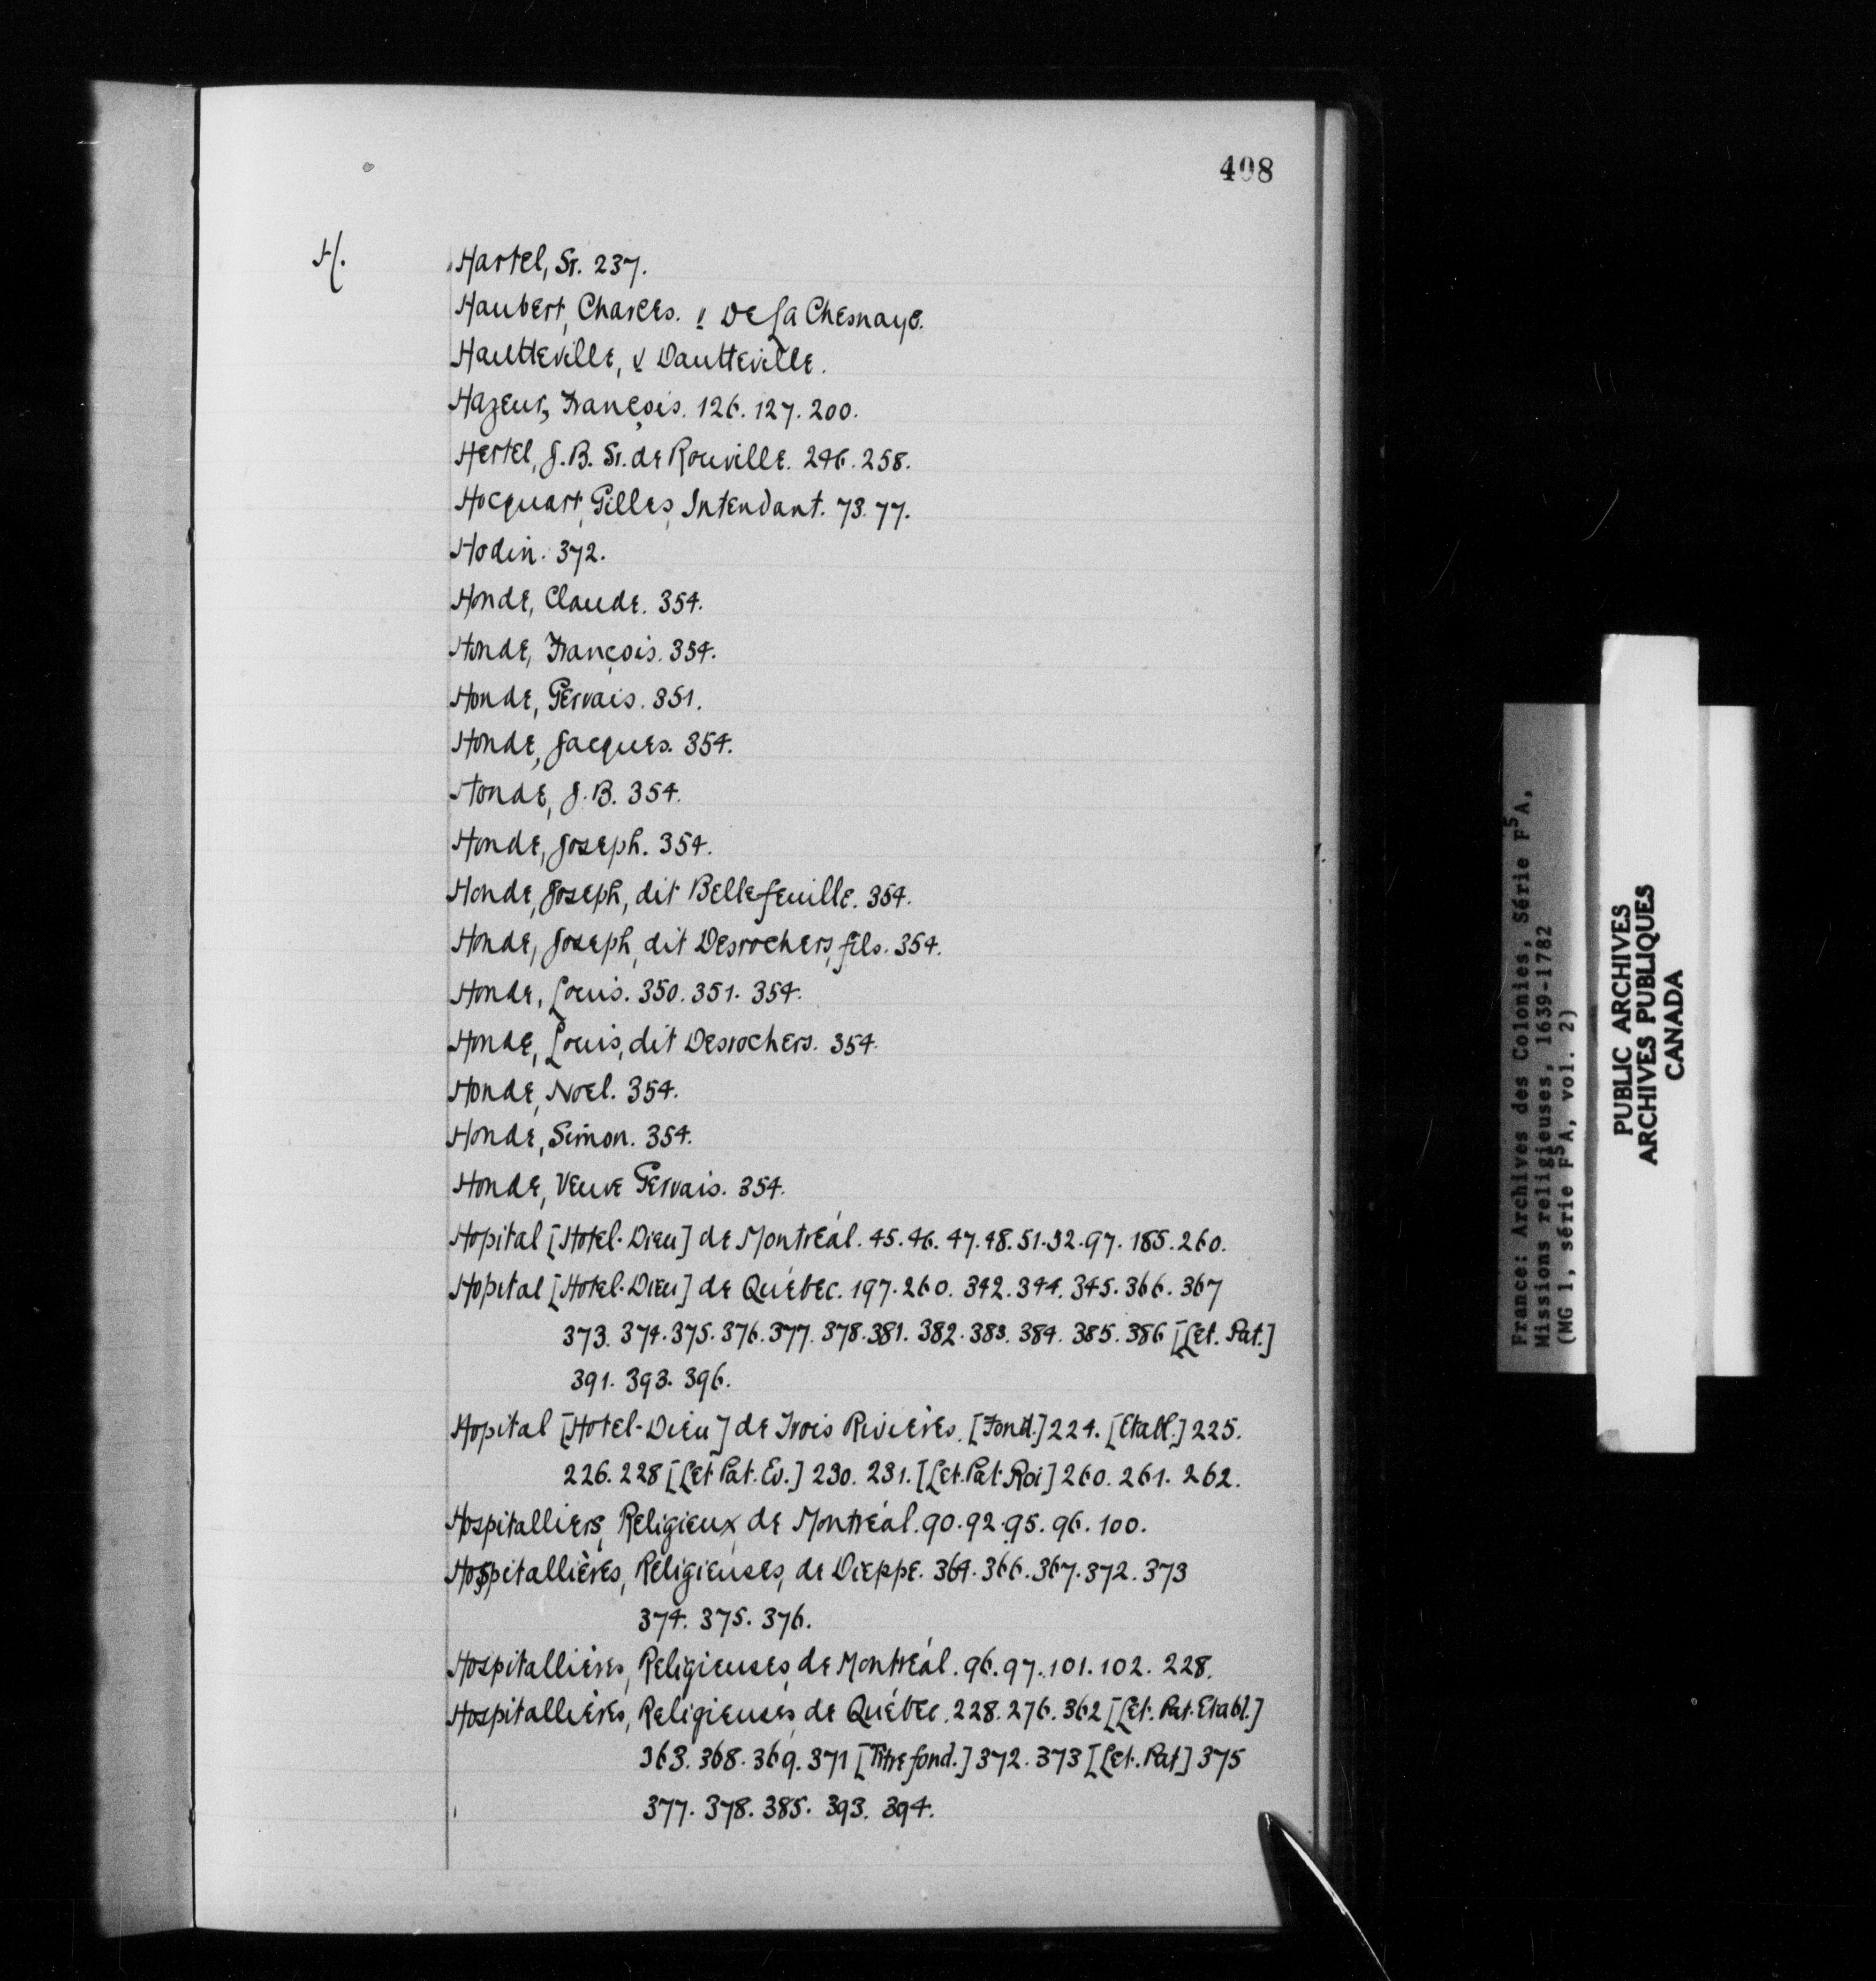 408
H.
Hartel, Sr. 237.
Haubert, Charles. v De la Chesnaye.
Hautteville, v Dautteville.
Hazeur, François. 126. 127. 200.
Hertel, J.B. Sr. de Rouville. 246. 258.
Hocquart, Gilles, Intendant. 73. 77.
Hodin. 372.
Honde, Claude. 354.
Honde, François. 354.
Honde, Gervais. 351.
Honde, Jacques. 354.
Honde, J.B. 354.
Honde, Joseph. 354.
Honde, Joseph, dit Bellefeuille. 354.
Honde, Joseph, dit Desrochers, fils. 354.
Honde, Louis. 350. 351. 354.
Honde, Louis, dit Desrochers. 354.
Honde, Noel. 354.
Honde, Simon. 354.
Honde, Veuve Gervais. 354.
Hopital [Hotel-Dieu] de Montréal. 45. 46. 47. 48. 51. 52. 97. 185. 260.
Hopital [Hotel-Dieu] de Québec. 197. 260. 342. 344. 345. 366. 367
373. 374. 375. 376. 377. 378. 381. 382. 383. 384. 385. 386 [Let. Pat.]
391. 393. 396.
Hopital [Hotel-Dieu] de Trois Rivières. [Fond.] 224. [Etabl.] 225.
226. 228 [Let Pat. Ev.] 230. 231. [Let. Pat. Roi] 260. 261. 262.
Hospitalliers, Religieux de Montréal. 90. 92. 95. 96. 100.
Hospitallières, Religieuses, de Dieppe. 364. 366. 367. 372. 373
374. 375. 376.
Hospitallières, Religieuses, de Montréal. 96. 97. 101. 102. 228.
Hospitallières, Religieuses, de Québec. 228. 276. 362 [Let. Pat. Etabl.]
363. 368. 369. 371 [Titre fond.] 372. 373 [Let. Pat] 375
377. 378. 385. 393. 394.
France: Archives des Colonies, Série F⁵A,
Missions religieuses, 1639-1782
(MG 1, série F⁵A, vol. 2)
PUBLIC ARCHIVES
ARCHIVES PUBLIQUES
CANADA